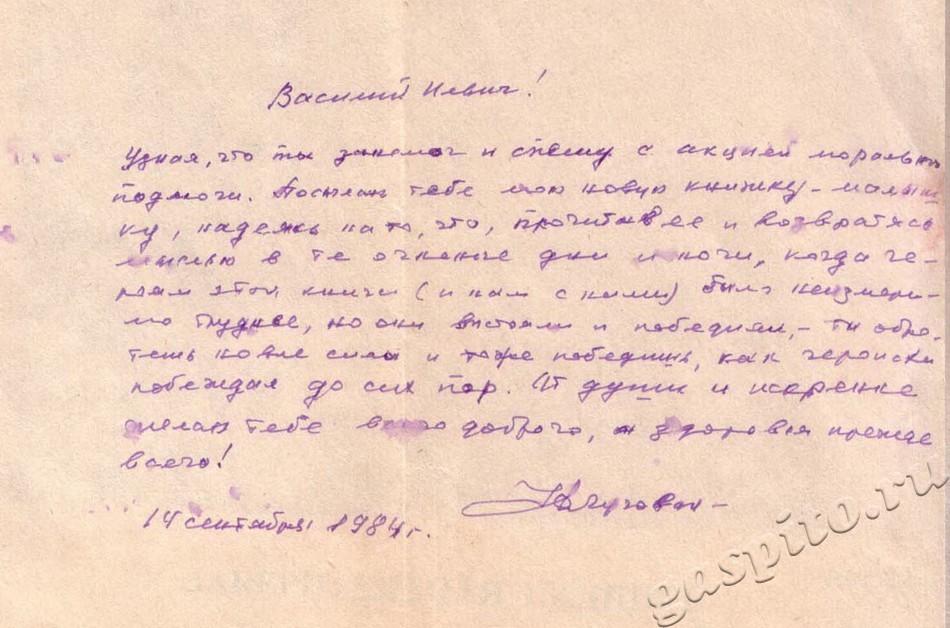 Василий Ильич!
Узнал, что ты занемог и спешу с акцией моральной
подмоги. Посылаю тебе мою новую книжку-малыш-
ку, надеясь на то, что, прочитав ее и возвратясь
мыслью в те огненные дни и ночи, когда ге-
роям этой книги (и нам с ними) было неизмери-
мо труднее, но они выстояли и победили, – ты обре-
тешь новые силы и тоже победишь, как геройски
побеждал до сих пор. От души и искренне
желаю тебе всего доброго, и здоровья прежде
всего!
14 сентября 1984 г.
gaspito.ru